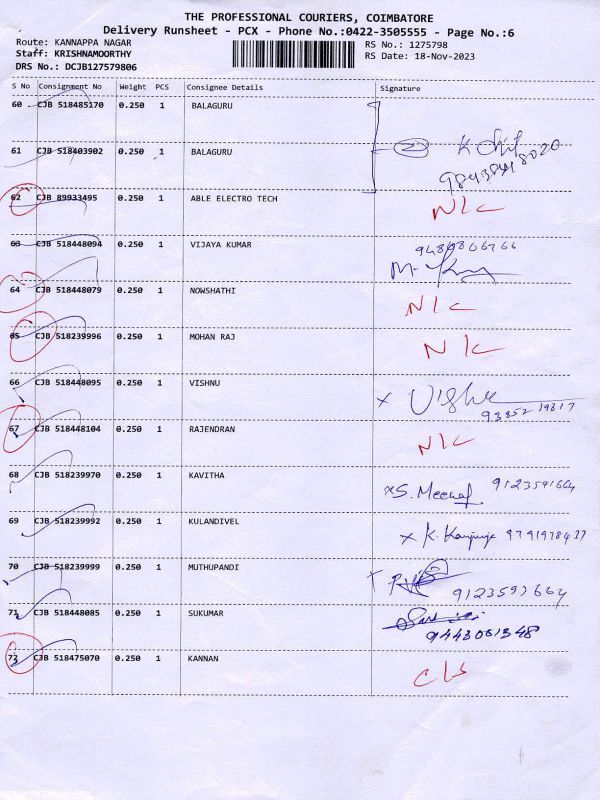 THE PROFESSIONAL COURIERS, COIMBATORE
Delivery Runsheet - PCX - Phone No.:0422-3505555 - Page No.:6
Route: KANNAPPA NAGAR
RS No.: 1275798
Staff: KRISHNAMOORTHY
RS Date: 18-Nov-2023
DRS No.: DCJB127579806
S No Consignment No Weight PCS Consignee Details Signature
60 CJB 518485170 0.250 1 BALAGURU
61 CJB 518403902 0.250 1 BALAGURU 2
62 CJB 89933495 0.250 1 ABLE ELECTRO TECH N/C
63 CJB 518448094 0.250 1 VIJAYA KUMAR
64 CJB 518448079 0.250 1 NOWSHATHI N/C
65 CJB 518239996 0.250 1 MOHAN RAJ N/C
66 CJB 518448095 0.250 1 VISHNU x
93852 19817
67 CJB 518448104 0.250 1 RAJENDRAN N/C
68 CJB 518239970 0.250 1 KAVITHA xS. 9123591664
69 CJB 518239992 0.250 1 KULANDIVEL x K. 9791978437
70 CJB 518239999 0.250 1 MUTHUPANDI
9123591664
71 CJB 518448085 0.250 1 SUKUMAR
9443061348
73 CJB 518475070 0.250 1 KANNAN